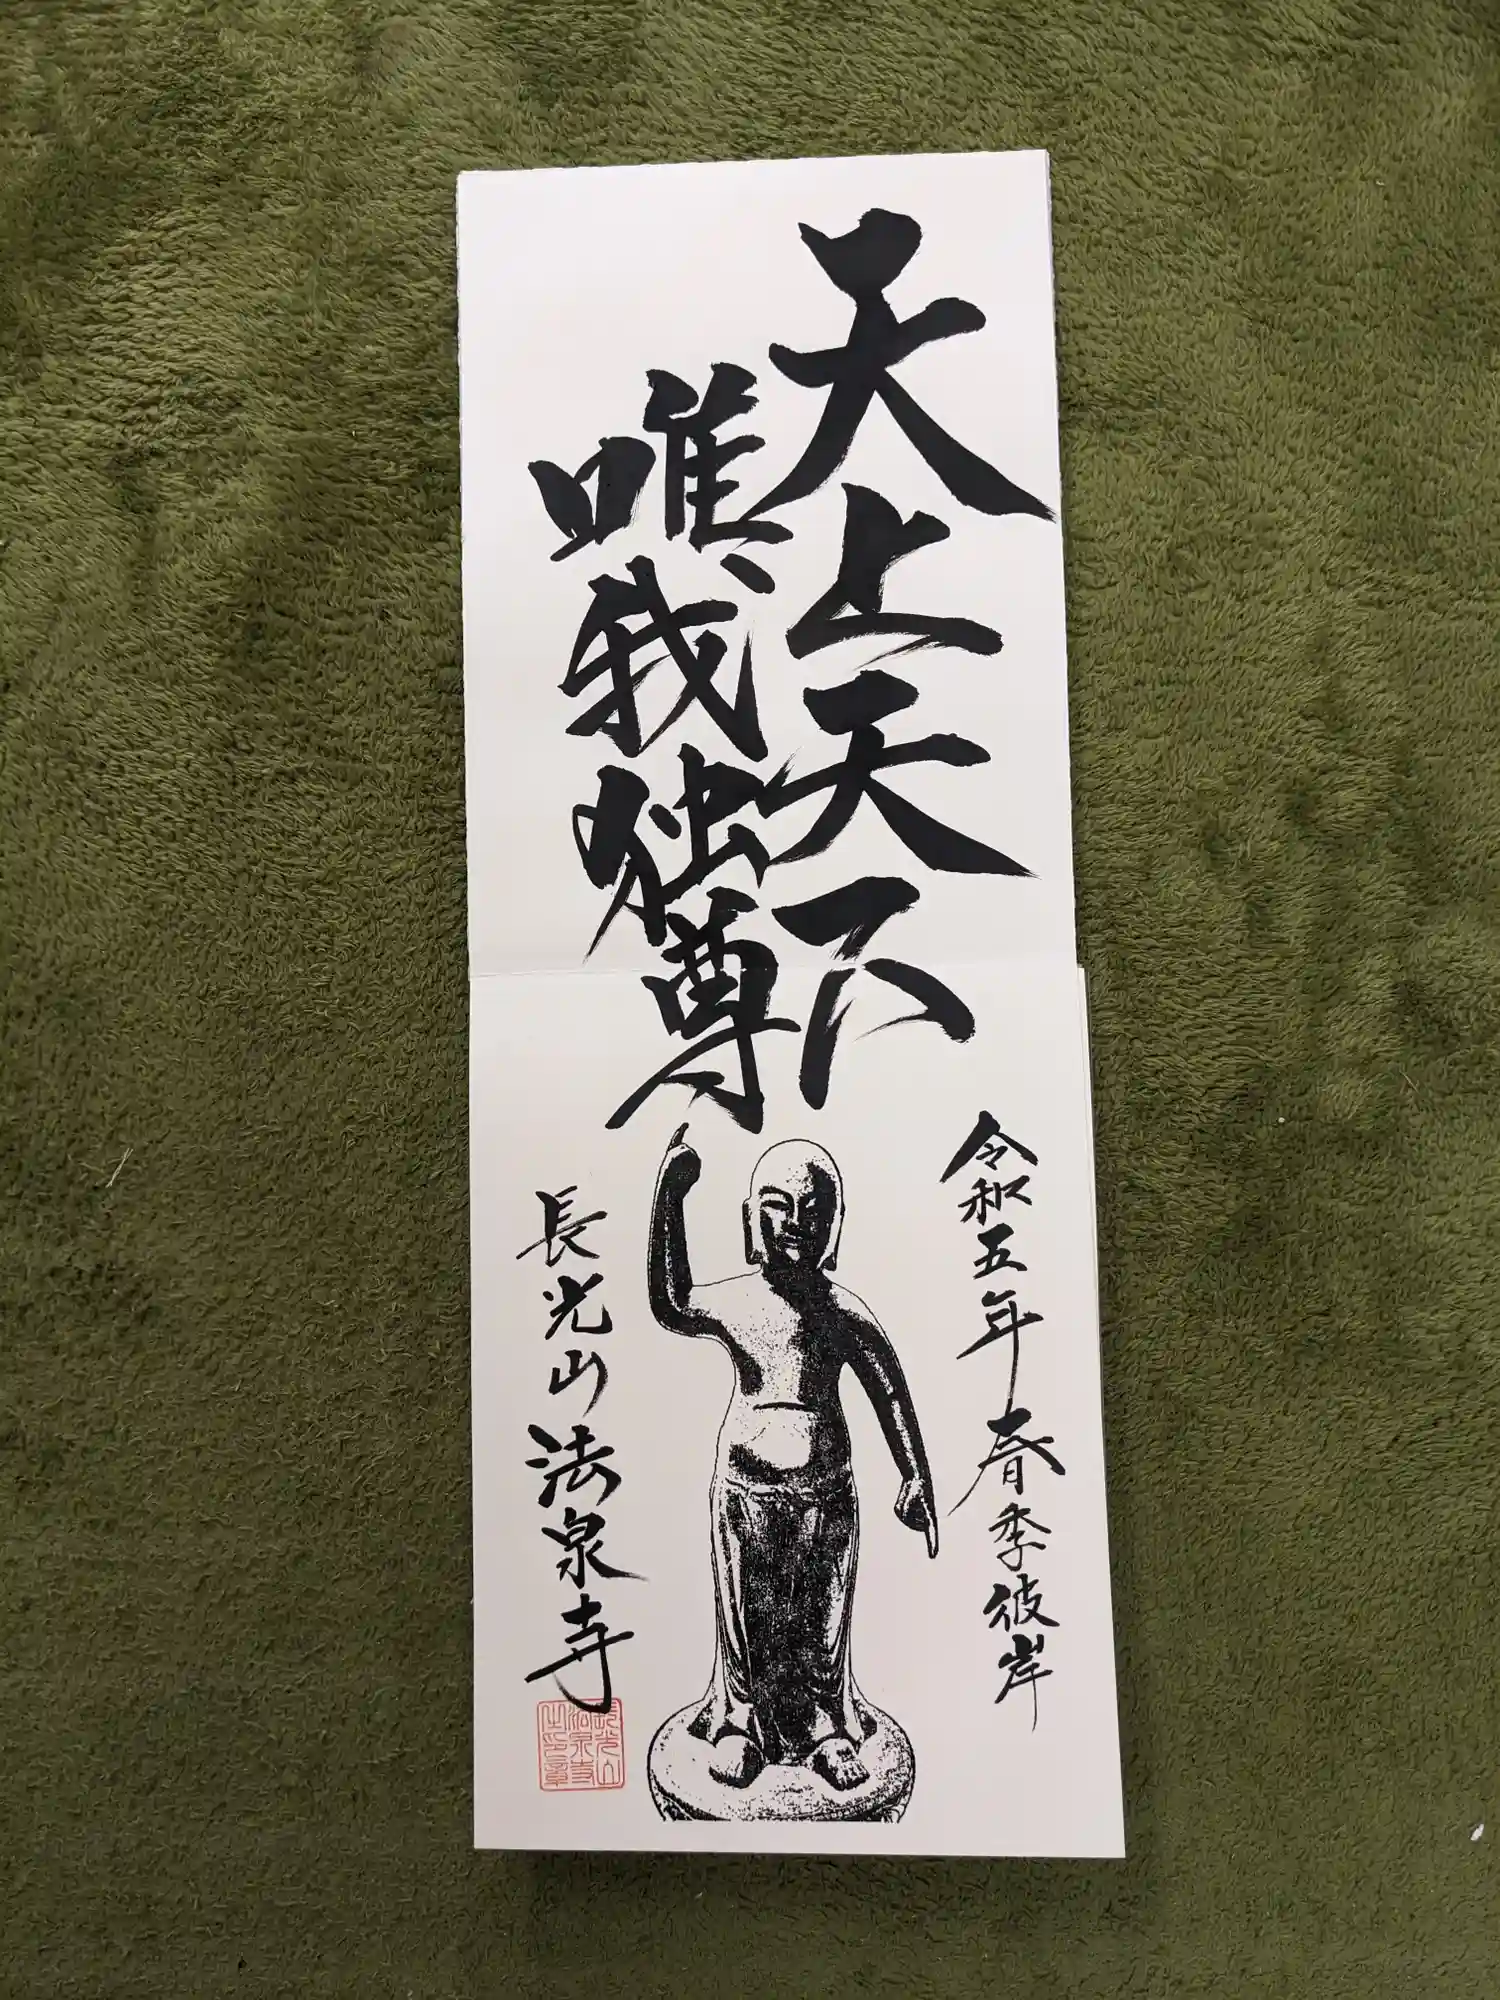 天上天下
唯我独尊
令和五年 春季彼岸
長光山 法泉寺
長光山
法泉寺
之印章